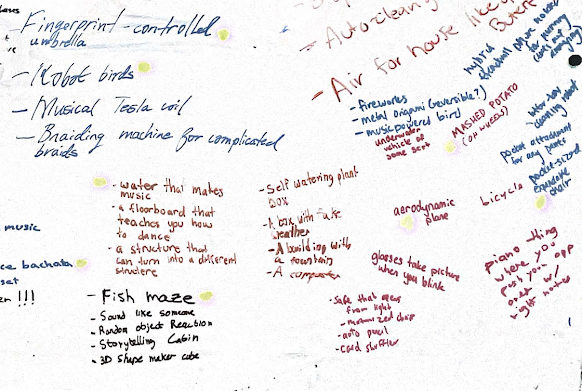 - Fingerprint-controlled
umbrella
- Robot birds
- Musical Tesla coil
- Braiding machine for complicated
braids
- Auto-cleaning
- Air for house like
- fireworks
- metal origami (reversible?)
- music powered bird
underwater
vehicle of
some sort
MASHED POTATO
(on wheels)
hybrid
- water that makes
music
- a floorboard that
teaches you how
to dance
- a structure that
can turn into a different
structure
- Self watering plant
box
- A box with fake
weather
- A building with
a fountain
- A computer
aerodynamic
plane
bicycle
pocket attachment
for any pants
pocket-sized
glasses take picture
when you blink
piano thing
where you
push your opp
right notes
- safe that opens
from light
- motorized door
- auto pencil
- card shuffler
music
bachata
set
!!!
- Fish maze
- Sound like someone
- Random object Reaction
- Storytelling Cabin
- 3D shape maker cube